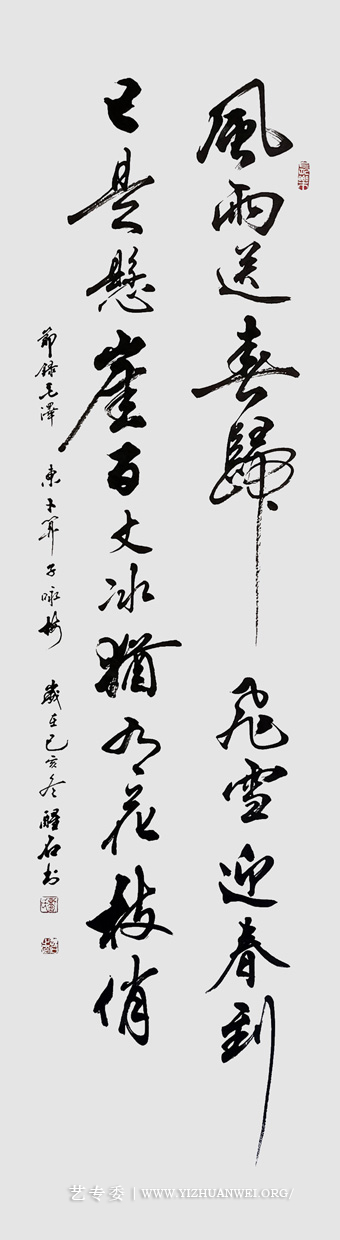 風雨送春歸 飛雪迎春到
已是懸崖百丈冰猶有花枝俏
節錄毛澤東卜算子咏梅 歲在己亥冬醒石书
艺专委 | WWW.YIZHUANWEI.ORG/